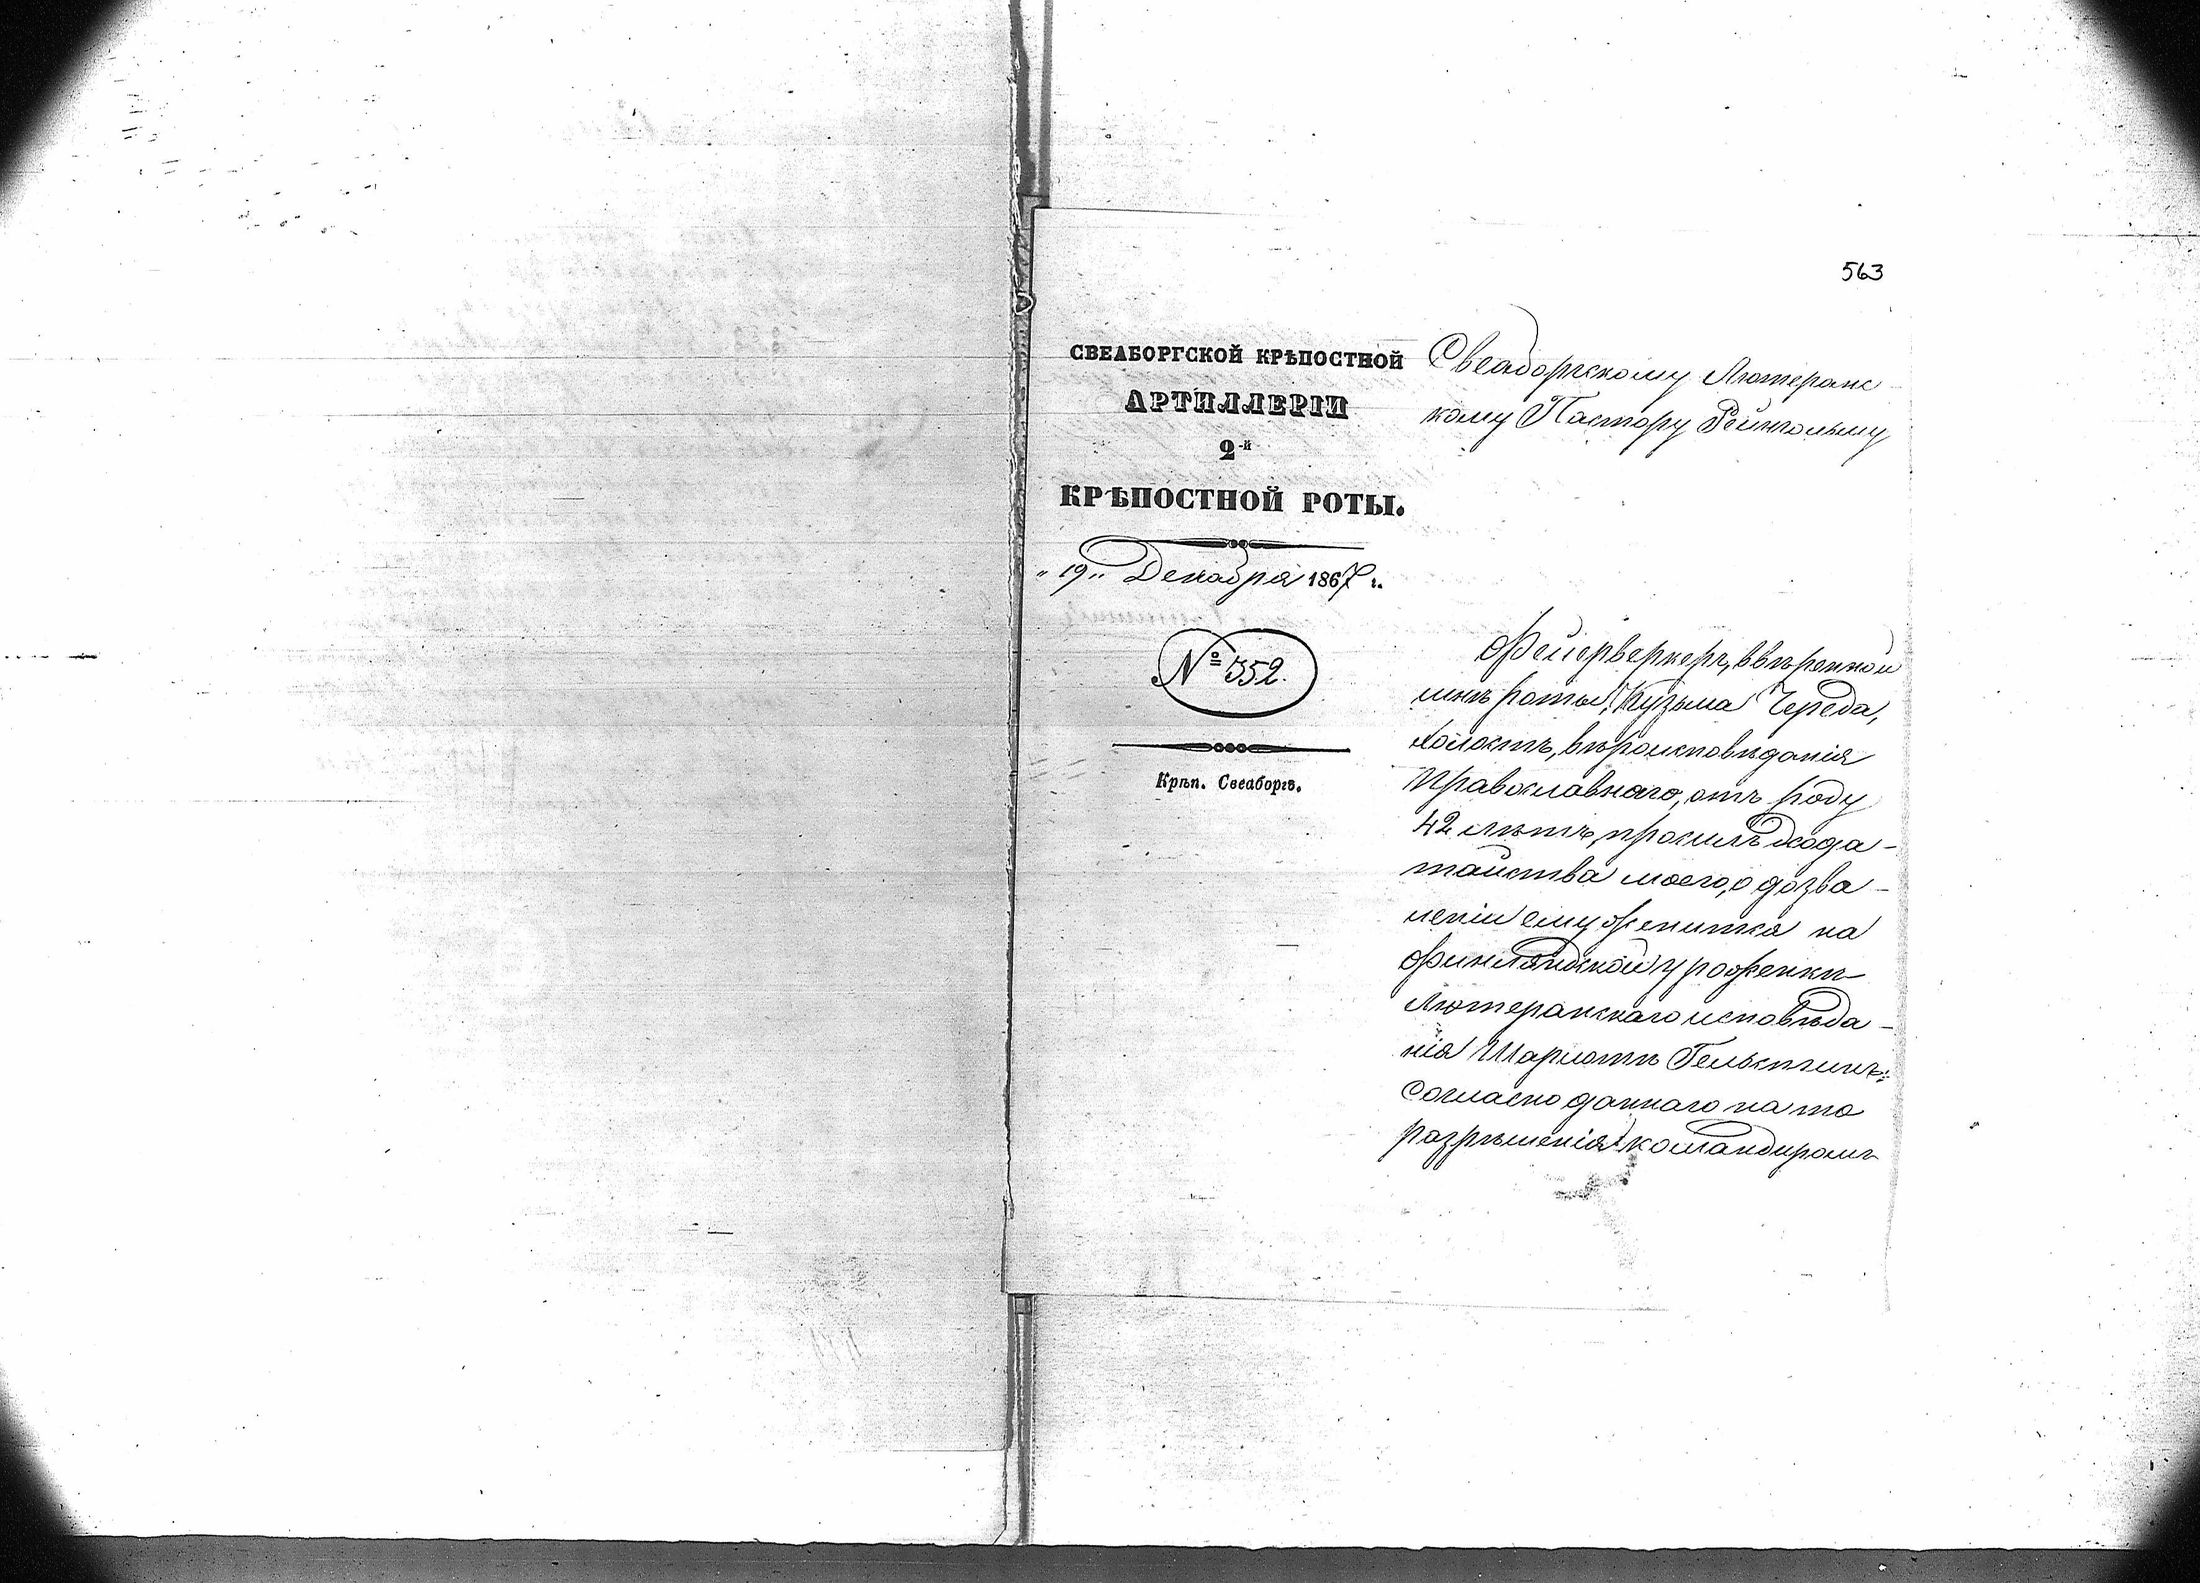 563
СВЕАБОРГСКОЙ КРѢПОСТНОЙ
АРТИЛЛЕРІИ
2-й
КРѢПОСТНОЙ РОТЫ.
„19„ Декабря 1867 г.
№ 352.
Крѣп. Свеаборгъ.
Свеаборгскому Лютеранс
кому Пастору
Фейерверкеръ, ввѣренной
мнѣ роты, Кузьма Череда,
холостъ, вѣроисповѣданія
Православнаго, отъ роду
42 лѣтъ, просилъ хода-
тайства моего, о дозва-
леніи ему женится на
финляндской уроженки
Лютеранскаго исповѣда-
нія Шарлотѣ
Согласно даннаго на то
разрѣшенія командиромъ